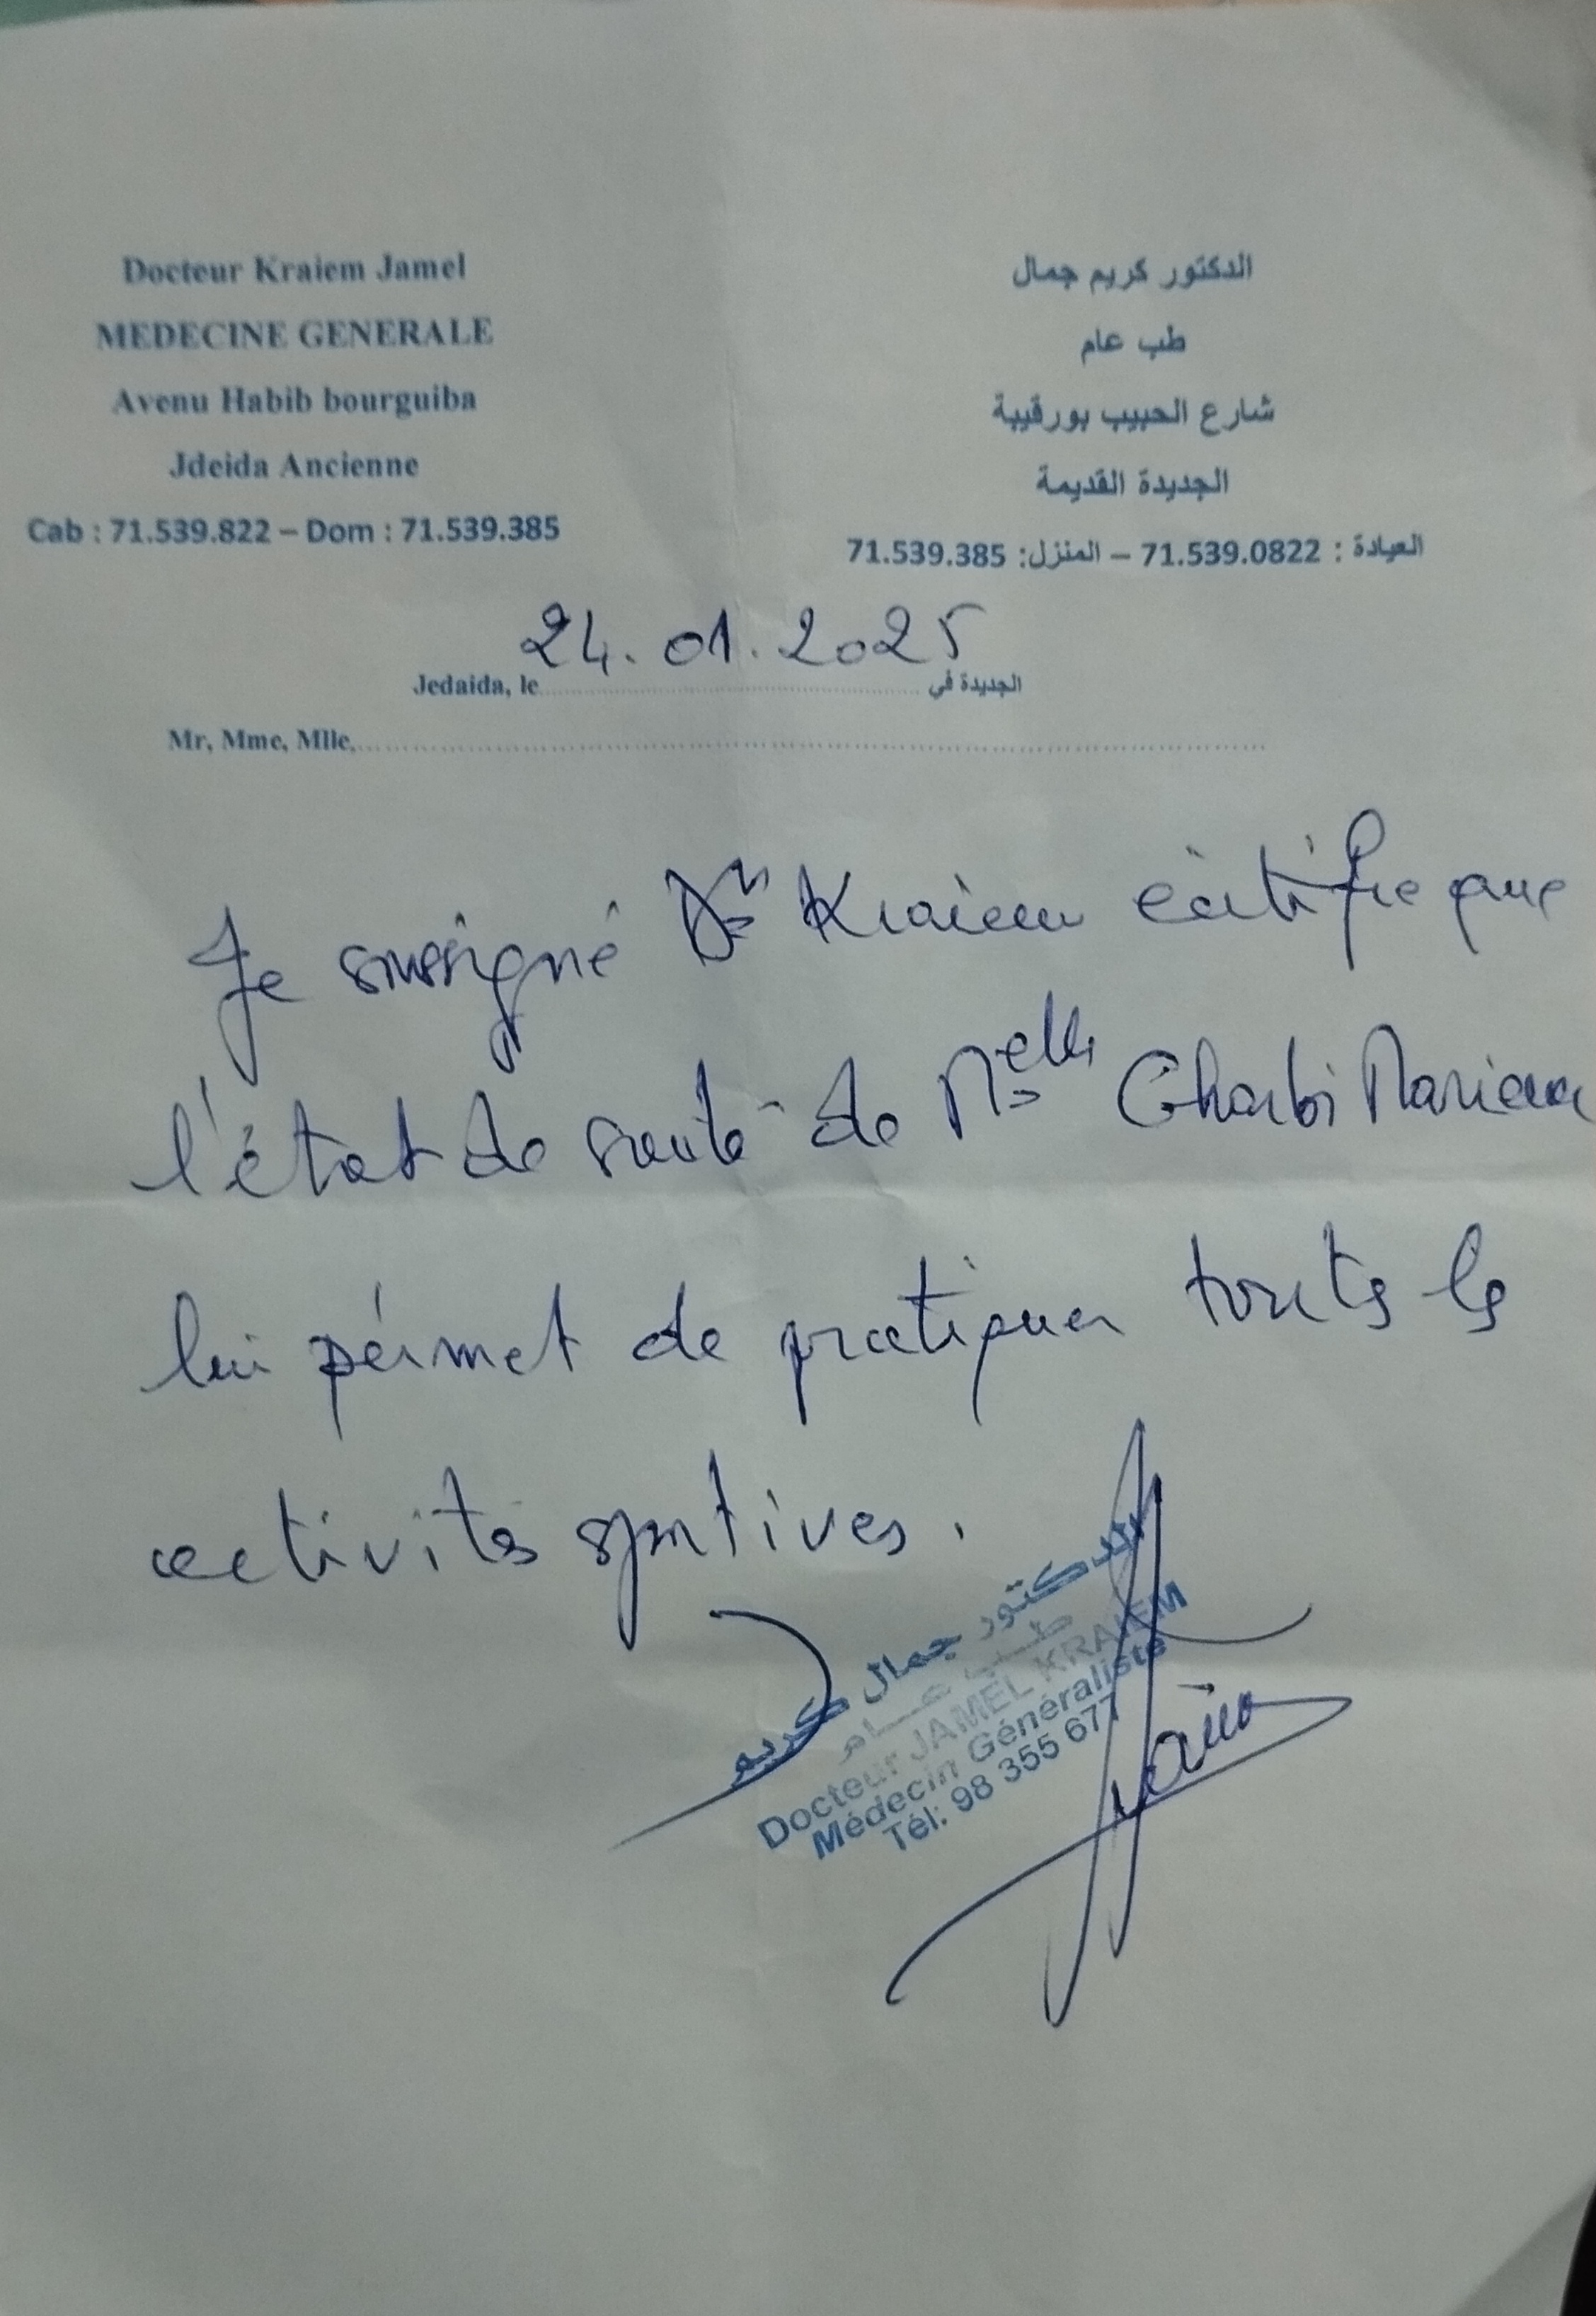 Docteur Kraiem Jamel
MEDECINE GENERALE
Avenu Habib bourguiba
Jdeida Ancienne
Cab : 71.539.822 – Dom : 71.539.385
الدكتور كريم جمال
طب عام
شارع الحبيب بورقيبة
الجديدة القديمة
العيادة : 71.539.0822 – المنزل: 71.539.385
Jedaida, le 24.01.2025 الجديدة في
Mr, Mme, Mlle,
Je soussigné Dr Kraiem certifie que
l'état de santé de Melle Gharbi Mariem
lui permet de pratiquer toutes les
activités sportives.
الدكتور جمال كريم
طب عام
Docteur JAMEL KRAIEM
Médecin Généraliste
Tél: 98 355 677